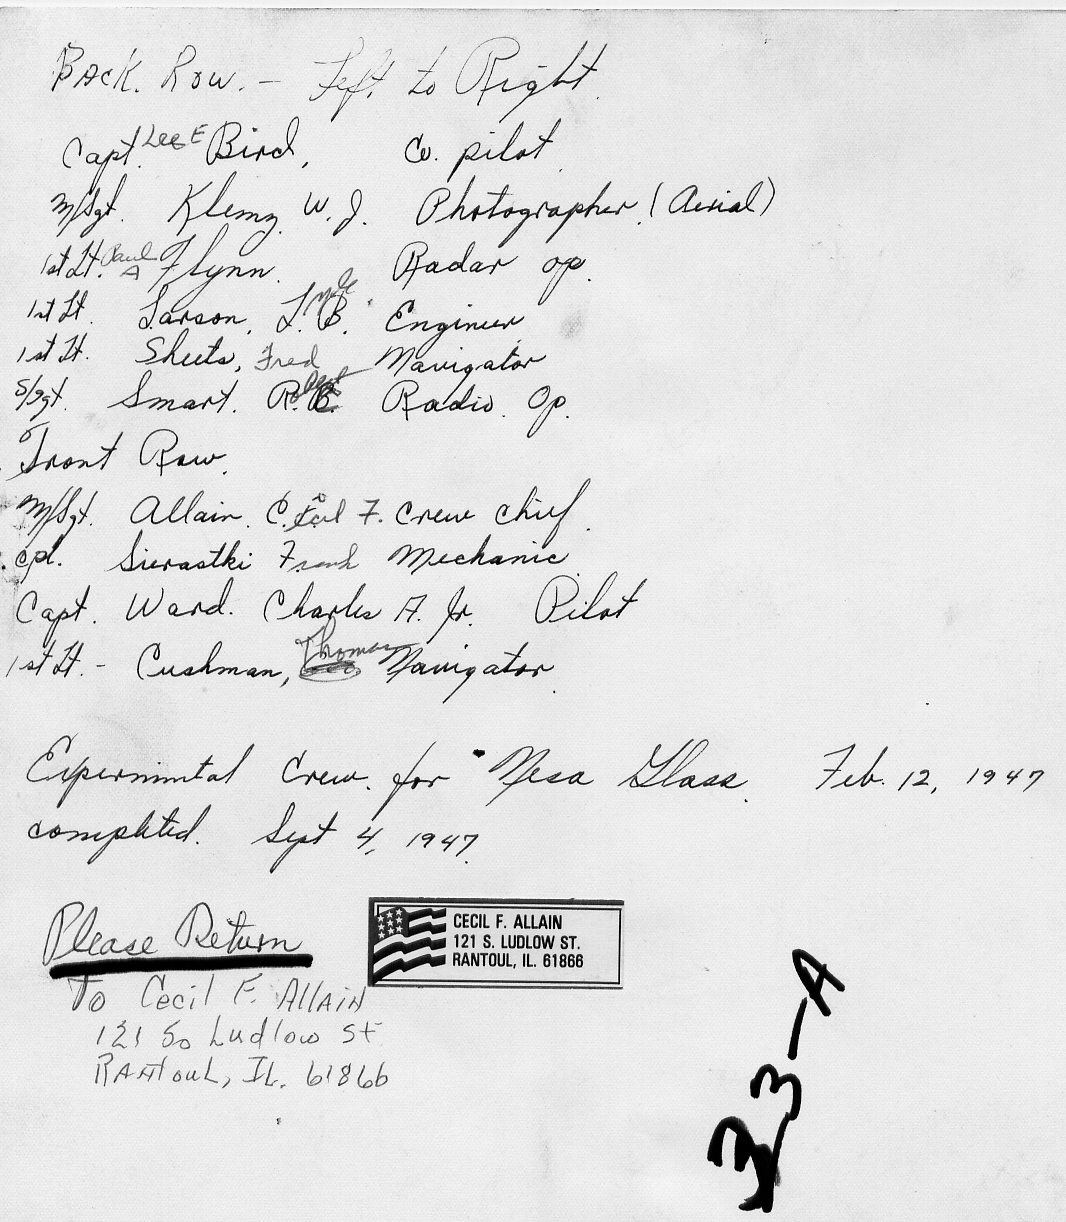 Back. Row. - Left to Right
Capt. Lee E Bird, Co. pilot
M/Sgt. Klemz W. J. Photographer (Aerial)
1st Lt. Paul A Flynn. Radar op.
1st Lt. Larson, L. B. Engineer
1st Lt. Sheets, Fred Navigator
S/Sgt. Smart. R. Radio Op.
Front Row.
M/Sgt. Allain. Cecil F. Crew chief.
cpl. Sierastki Frank Mechanic
Capt. Ward. Charles A. Jr. Pilot
1st Lt. - Cushman, Thomas Navigator
Experimental Crew. for "Nesa Glass. Feb. 12, 1947
completed. Sept 4, 1947.
Please Return
To Cecil F. Allain
121 So Ludlow St
Rantoul, IL. 61866
CECIL F. ALLAIN
121 S. LUDLOW ST.
RANTOUL, IL. 61866
33-A